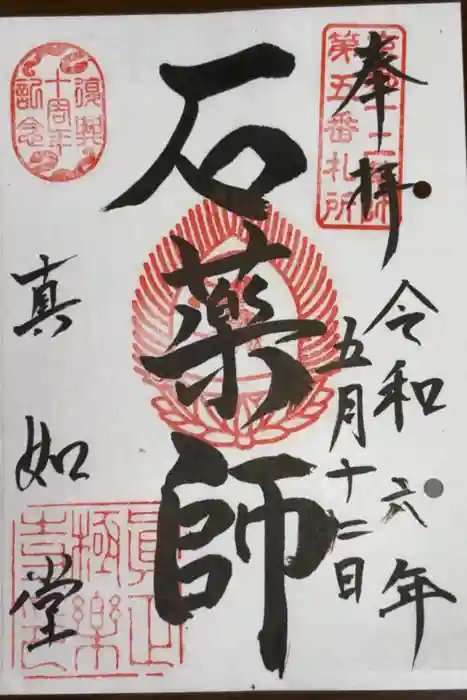 奉拝
京都十二薬師
第五番札所
令和六年
五月十二日
石薬師
復興
十周年
記念
真如堂
眞正
極樂
寺印